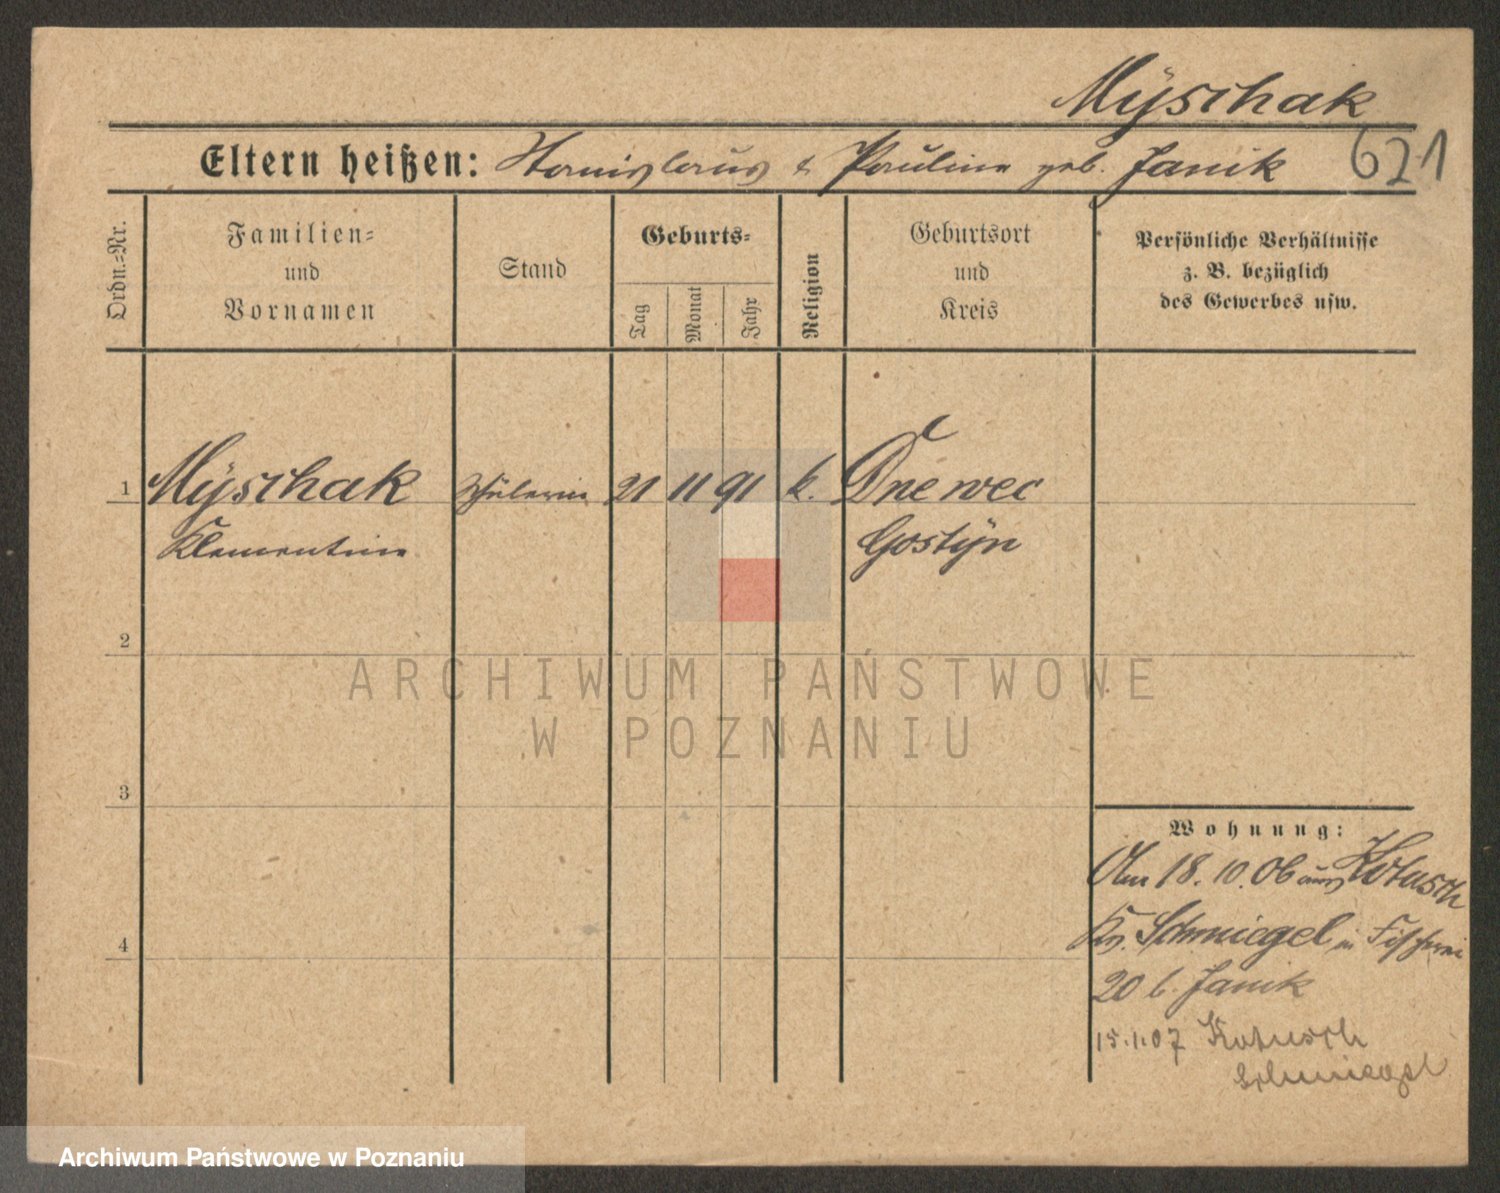 Myschak
Eltern heißen: Stanislaus & Pauline geb. Janik 621
Ordn.-Nr.
Familien-
und
Vornamen
Stand
Geburts-
Tag
Monat
Jahr
Religion
Geburtsort
und
Kreis
Persönliche Verhältnisse
z. B. bezüglich
des Gewerbes usw.
1 Mÿschak Schülerin 21 11 91 k. Drzewec
Klementine Gostÿn
2
ARCHIWUM PAŃSTWOWE
W POZNANIU
3
Wohnung:
Am 18.10.06 aus Kotusch
4
Kr. Schmiegel in Fischerei
20 b. Janik
15.1.07 Kotusch
Schmiegel
Archiwum Państwowe w Poznaniu